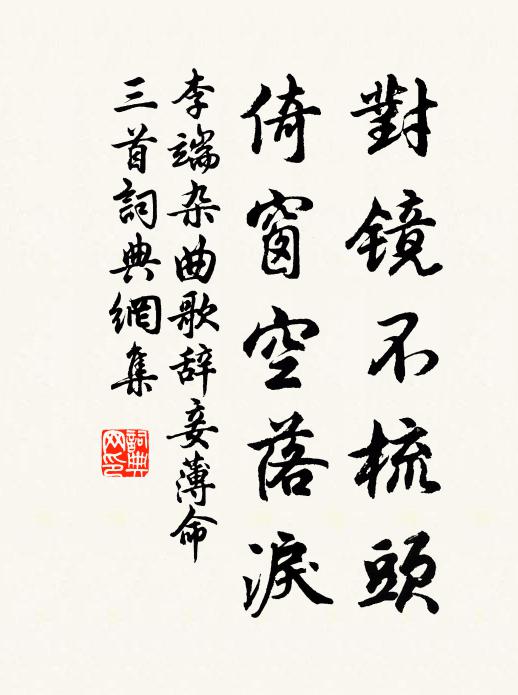 對镜不梳頭
倚窗空落淚
李端杂曲歌辞妾薄命
三首詞典網集
詞典
网印